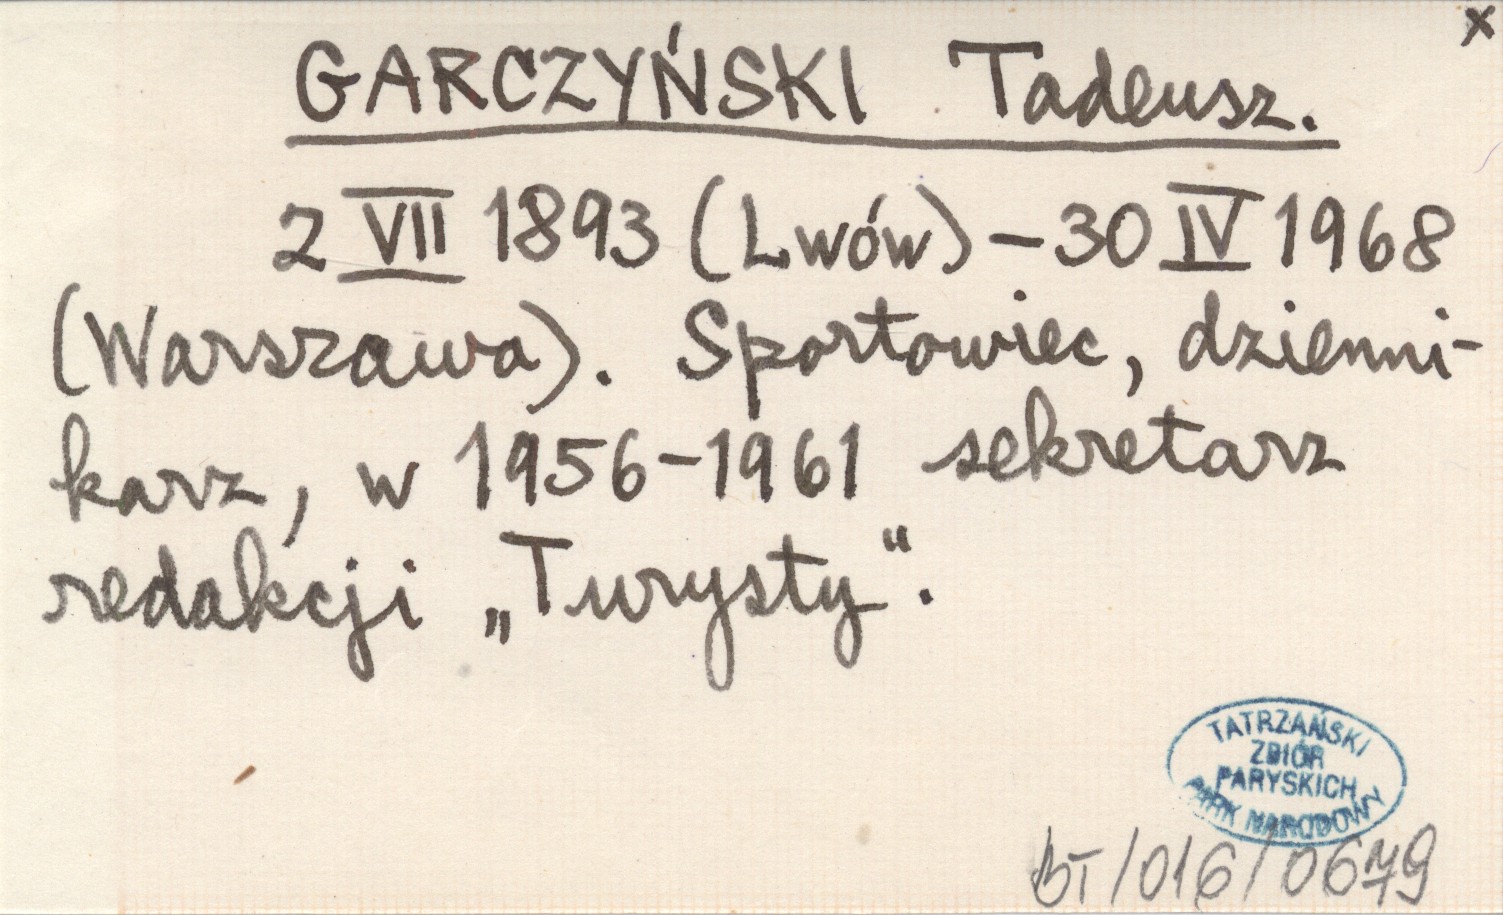 x
GARCZYŃSKI Tadeusz.
2 VII 1893 (Lwów) – 30 IV 1968
(Warszawa). Sportowiec, dzienni-
karz, w 1956–1961 sekretarz
redakcji „Turysty“.
TATRZAŃSKI
ZBIÓR
PARYSKICH
PARK NARODOWY
BT/016/0679